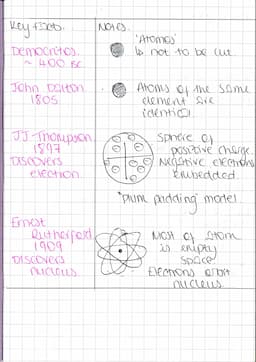 Key facts.
Notes.
Democritos
~ 400 BC
'Atomos'
↳ not to be cut
John Dalton
1805
Atoms of the same
element are
identical
JJ Thompson
1897
Discovers
electron
Sphere of
positive charge.
Negative electrons
Embedded
'Plum pudding' model.
Ernest
Rutherford
1909
Discovers
nucleus
Most of Atom
is empty
space
Electrons orbit
nucleus.